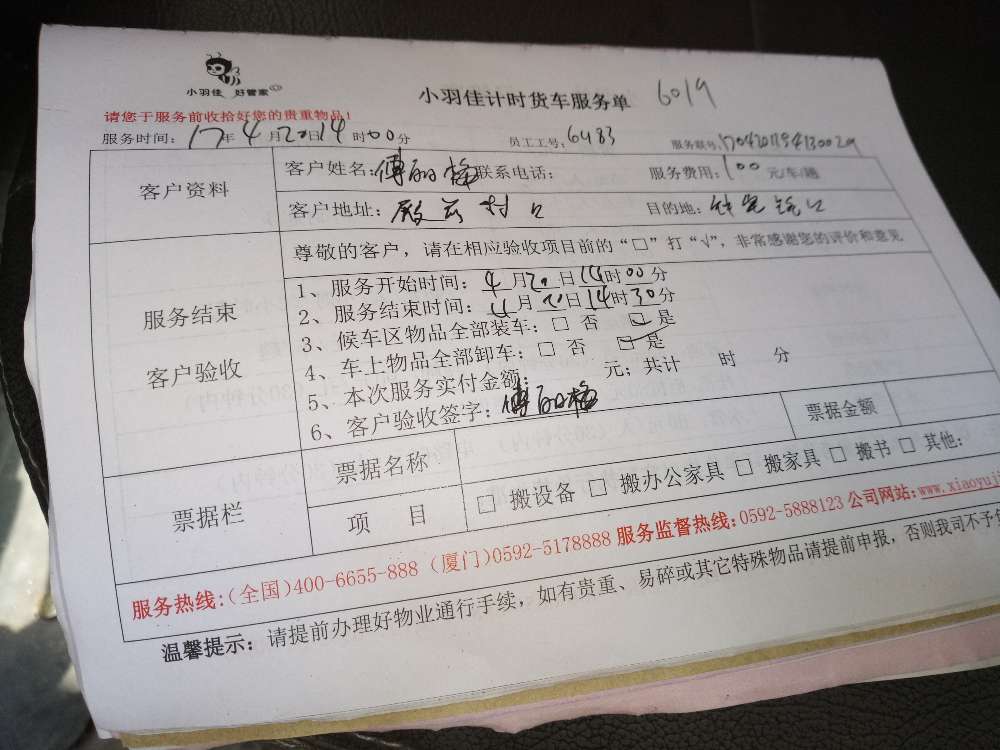 小羽佳 好管家
小羽佳计时货车服务单 6019
请您于服务前收拾好您的贵重物品!
服务时间: 17年4月20日14时00分 员工工号: 6483 服务联号:
客户资料
客户姓名: 联系电话: 服务费用: 100 元/车/趟
客户地址: 村口 目的地:
服务结束
客户验收
尊敬的客户，请在相应验收项目前的“□”打“√”，非常感谢您的评价和意见
1、服务开始时间: 4月20日14时00分
2、服务结束时间: 4月20日14时30分
3、候车区物品全部装车: □ 否 □ 是
4、车上物品全部卸车: □ 否 □ 是
5、本次服务实付金额: 元; 共计 时 分
6、客户验收签字:
票据栏
票据名称 票据金额
项 目 □ 搬设备 □ 搬办公家具 □ 搬家具 □ 搬书 □ 其他:
服务热线:(全国)400-6655-888 (厦门)0592-5178888 服务监督热线:0592-5888123 公司网站:www.xiaoyuj
温馨提示: 请提前办理好物业通行手续，如有贵重、易碎或其它特殊物品请提前申报，否则我司不予